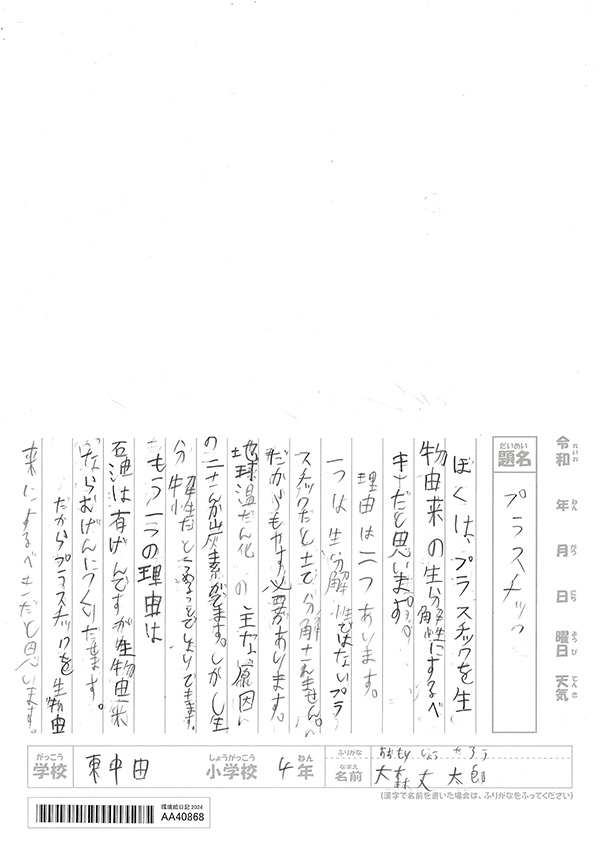 令和 れいわ 年 ねん 月 がつ 日 にち 曜日 ようび 天気 てんき
だいめい
題名
プラスチック
ぼくは、プラスチックを生
物由来の生分解性にするべ
きだと思います。
理由は二つあります。
一つは生分解性ではないプラ
スチックだと土で分解されません。
だからもやす必要があります。
地球温だん化の主な原因
の二さんか炭素がでます。しかし生
分解性だと
もう一つの理由は
石油は有げんですが生物由来
ならむげんにつくりだせます。
だからプラスチックを生物由
来にするべきだと思います。
がっこう
学校
東中田
しょうがっこう
小学校
4
ねん
年
ふりがな
おおもり じょう たろう
なまえ
名前
大森丈太郎
(漢字で名前を書いた場合は、ふりがなをふってください)
環境絵日記2024
AA40868